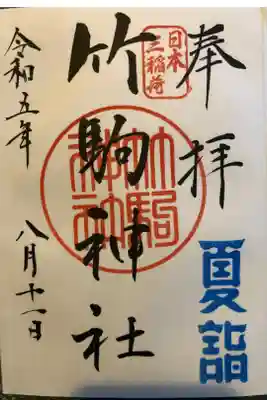 奉拝
日本
三稲荷
竹駒神社
竹駒神社
令和五年
八月十一日
夏詣